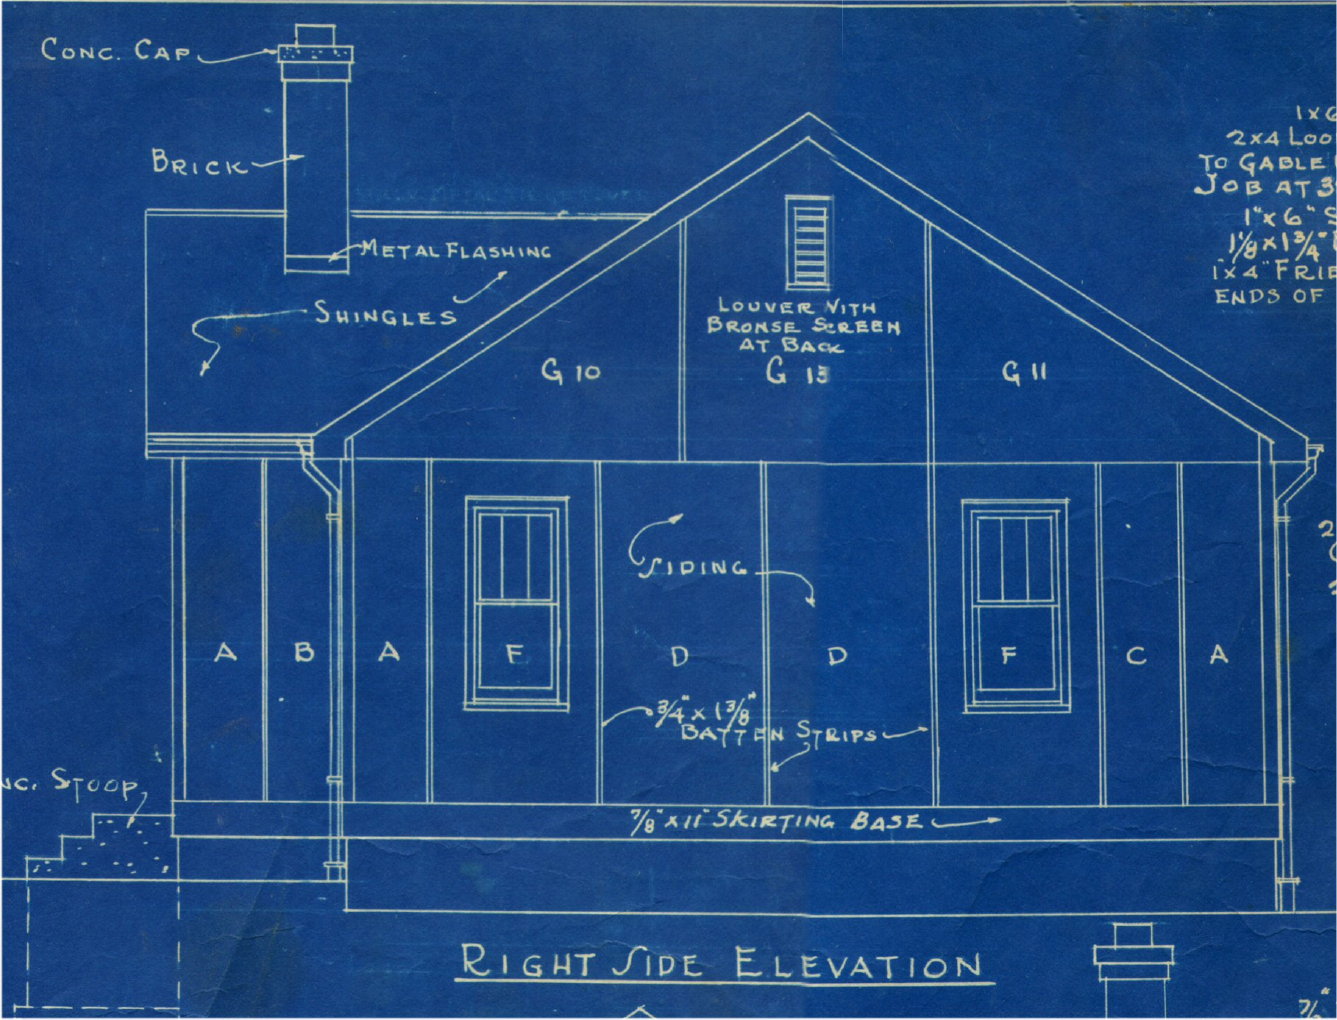 CONC. CAP
BRICK
METAL FLASHING
SHINGLES
LOUVER WITH
BRONSE SCREEN
AT BACK
G 10
G 13
G 11
1x6
2x4 LOO
TO GABLE
JOB AT 3
1"x6" S
1 1/8 x 1 3/4"
1x4" FRIE
ENDS OF
2
SIDING
A
B
A
F
D
D
F
C
A
3/4" x 1 3/8"
BATTEN STRIPS
NC. STOOP
7/8" x 11" SKIRTING BASE
RIGHT SIDE ELEVATION
7/8"